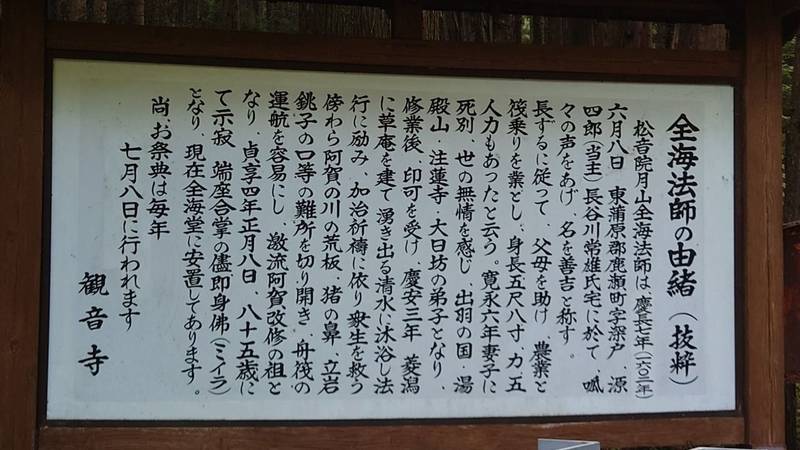 全海法師の由緒（抜粋）
松音院月山全海法師は、慶長七年（一六〇二年）
六月八日 東蒲原郡鹿瀬町字深戸、源
四郎（当主）長谷川常雄氏宅に於て、呱
々の声をあげ、名を善吉と称す。
長ずるに従って、父母を助け、農業と
筏乗りを業とし、身長五尺八寸、力、五
人力もあったと云う。寛永六年妻子に
死別、世の無情を感じ、出羽の国・湯
殿山・注蓮寺・大日坊の弟子となり、
修業後、印可を受け、慶安三年 菱潟
に草庵を建て湧き出る清水に沐浴し法
行に励み、加治祈禱に依り衆生を救う
傍わら阿賀の川の荒板、猪の鼻、立岩
銚子の口等の難所を切り開き、舟筏の
運航を容易にし、激流阿賀改修の祖と
なり、貞享四年正月八日、八十五歳に
て示寂 端座合掌の儘即身佛（ミイラ）
となり、現在全海堂に安置してあります。
尚、お祭典は毎年
七月八日に行われます
観音寺